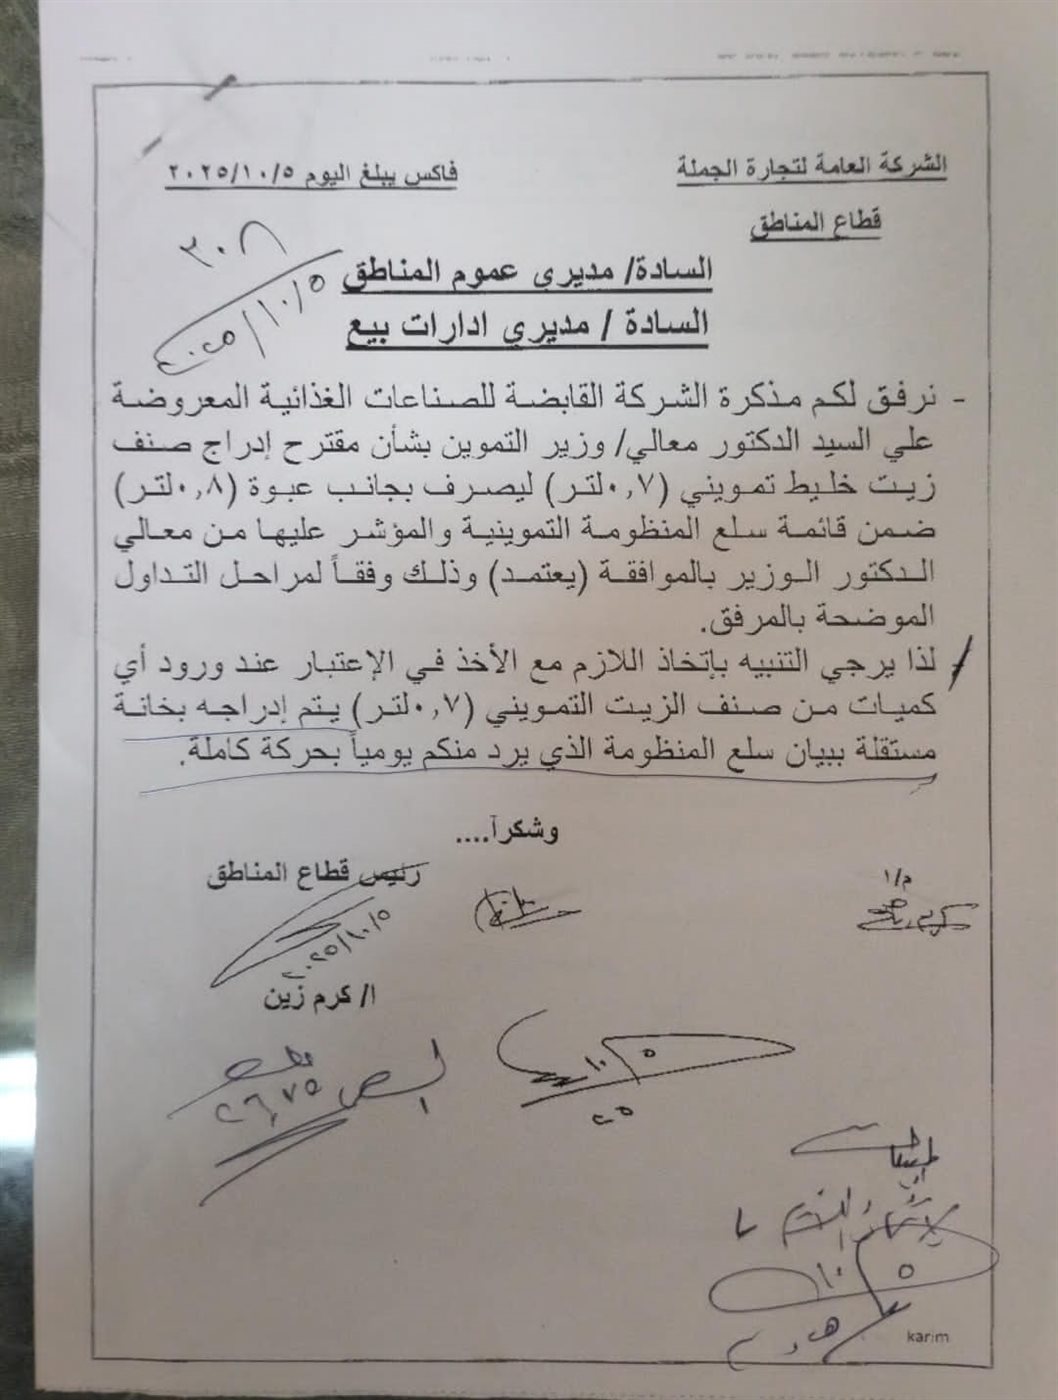 الشركة العامة لتجارة الجملة
فاكس يبلغ اليوم ٢٠٢٥/١٠/٥
قطاع المناطق
٣٠٨
٢٠٢٥/١٠/٥
السادة/ مديرى عموم المناطق
السادة / مديري ادارات بيع
- نرفق لكم مذكرة الشركة القابضة للصناعات الغذائية المعروضة
علي السيد الدكتور معالي/ وزير التموين بشأن مقترح إدراج صنف
زيت خليط تمويني (٠,٧لتر) ليصرف بجانب عبوة (٠,٨لتر)
ضمن قائمة سلع المنظومة التموينية والمؤشر عليها من معالي
الدكتور الوزير بالموافقة (يعتمد) وذلك وفقاً لمراحل التداول
الموضحة بالمرفق.
لذا يرجي التنبيه بإتخاذ اللازم مع الأخذ في الإعتبار عند ورود أي
كميات من صنف الزيت التمويني (٠,٧لتر) يتم إدراجه بخانة
مستقلة ببيان سلع المنظومة الذي يرد منكم يومياً بحركة كاملة.
وشكراً....
رئيس قطاع المناطق
م/١
٢٠٢٥/١٠/٥
ا/ كرم زين
٢٦,٧٥
١٠/٥
٢٥
١٠/٥
karim